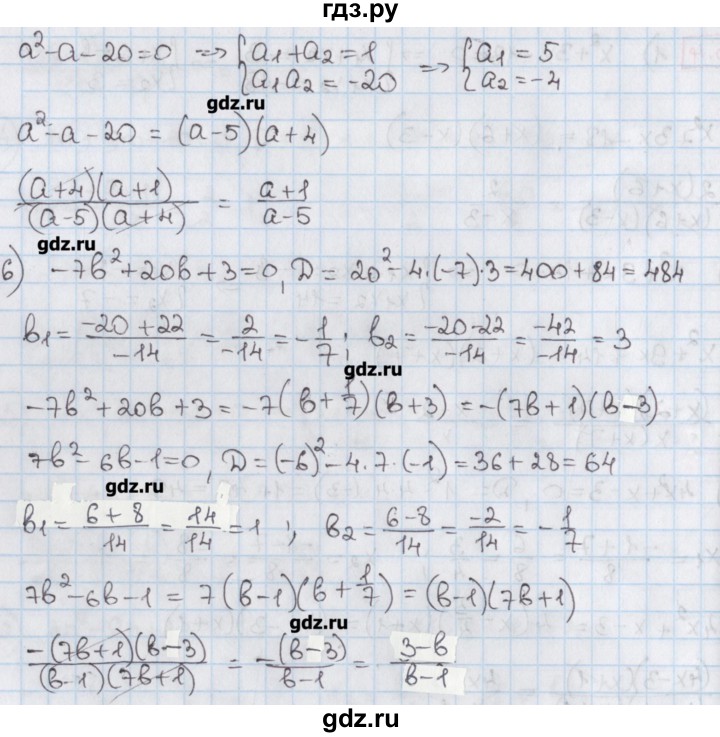 гдз.ру
a² - a - 20 = 0 ⇒ { a₁ + a₂ = 1 ⇒ { a₁ = 5
{ a₁a₂ = -20 { a₂ = -4
gdz.ru
a² - a - 20 = (a-5)(a+4)
(a+4)(a+1) / (a-5)(a+4) = a+1 / a-5
gdz.ru
6) -7b² + 20b + 3 = 0, D = 20² - 4·(-7)·3 = 400 + 84 = 484
b₁ = -20+22 / -14 = 2 / -14 = -1/7; b₂ = -20-22 / -14 = -42 / -14 = 3
gdz.ru
-7b² + 20b + 3 = -7(b + 1/7)(b+3) = -(7b+1)(b-3)
7b² - 6b - 1 = 0, D = (-6)² - 4·7·(-1) = 36 + 28 = 64
gdz.ru
b₁ = 6+8 / 14 = 14 / 14 = 1; b₂ = 6-8 / 14 = -2 / 14 = -1/7
7b² - 6b - 1 = 7(b-1)(b + 1/7) = (b-1)(7b+1)
gdz.ru
-(7b+1)(b-3) / (b-1)(7b+1) = -(b-3) / b-1 = 3-b / b-1
gdz.ru